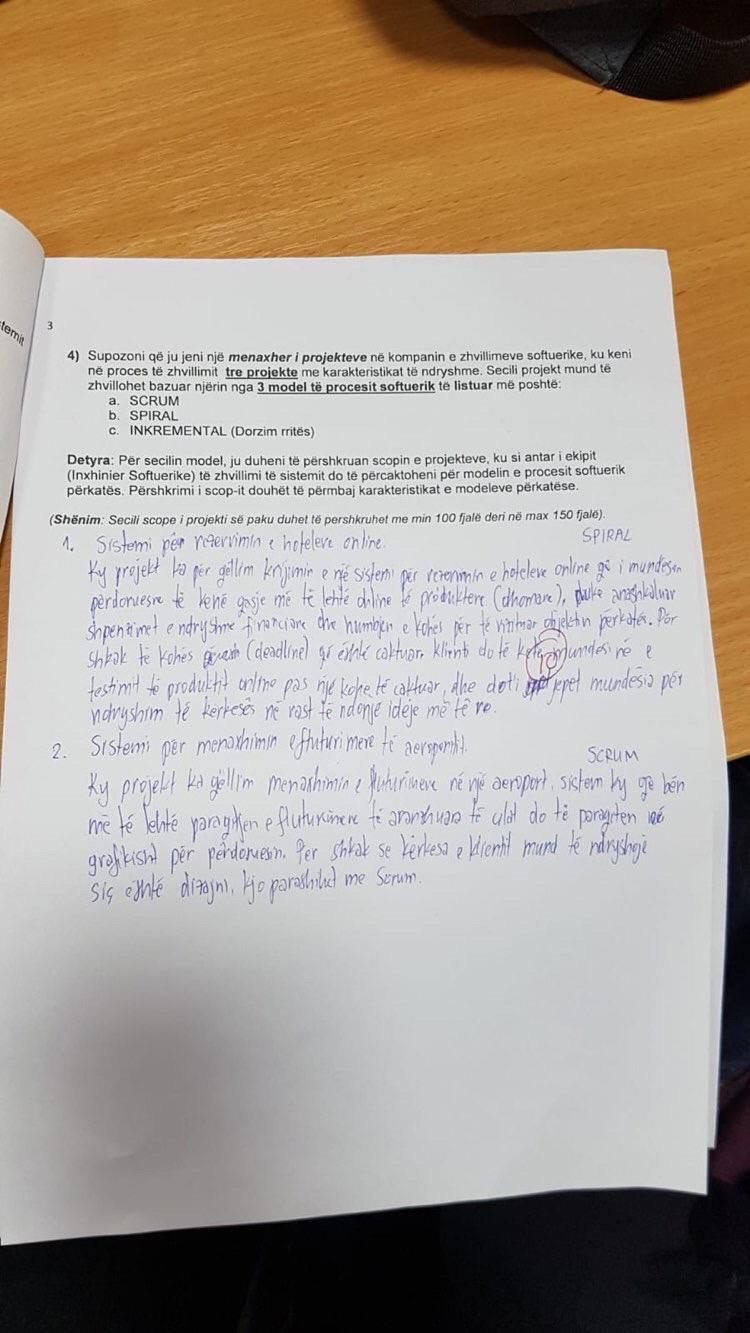 stemit
3
4) Supozoni që ju jeni një menaxher i projekteve në kompanin e zhvillimeve softuerike, ku keni
në proces të zhvillimit tre projekte me karakteristikat të ndryshme. Secili projekt mund të
zhvillohet bazuar njërin nga 3 model të procesit softuerik të listuar më poshtë:
a. SCRUM
b. SPIRAL
c. INKREMENTAL (Dorzim rritës)
Detyra: Për secilin model, ju duheni të përshkruan scopin e projekteve, ku si antar i ekipit
(Inxhinier Softuerike) të zhvillimi të sistemit do të përcaktoheni për modelin e procesit softuerik
përkatës. Përshkrimi i scop-it douhët të përmbaj karakteristikat e modeleve përkatëse.
(Shënim: Secili scope i projekti së paku duhet të pershkruhet me min 100 fjalë deri në max 150 fjalë).
1. Sistemi për rezervimin e hoteleve online. SPIRAL
Ky projekt ka për qëllim krijimin e një sistemi për rezervimin e hoteleve online që i mundëson
përdoruesve të kenë qasje më të lehtë online të produkteve (dhomave), duke anashkaluar
shpenzimet e ndryshme financiare dhe humbjen e kohës për të vizituar objektin përkatës. Për
shkak të kohës (deadline) që është caktuar, klienti do të ketë mundësinë e
testimit të produktit online pas një kohe të caktuar, dhe do ti jepet mundësia për
ndryshim të kërkesës në rast të ndonjë ideje më të re.
2. Sistemi për menaxhimin e fluturimeve të aeroportit.
SCRUM
Ky projekt ka qëllim menaxhimin e fluturimeve në një aeroport, sistem ky që bën
më të lehtë paragitjen e fluturimeve të aranzhuara të cilat do të paragiten
grafikisht për përdoruesin. Për shkak se kërkesa e klientit mund të ndryshojë
siç është dizajni, kjo parashihet me Scrum.